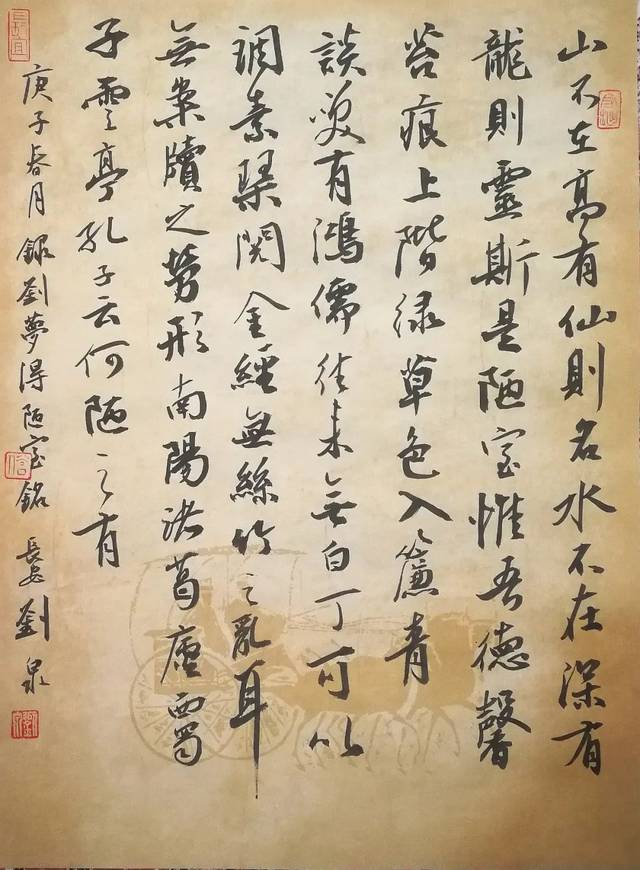 山不在高有仙則名水不在深有
龍則靈斯是陋室惟吾德馨
苔痕上階緑草色入簾青
談笑有鴻儒往來無白丁可以
調素琴閱金經無絲竹之亂耳
無案牘之勞形南陽諸葛廬西蜀
子雲亭孔子云何陋之有
庚子春月錄劉夢得陋室銘 長安劉泉
長宜